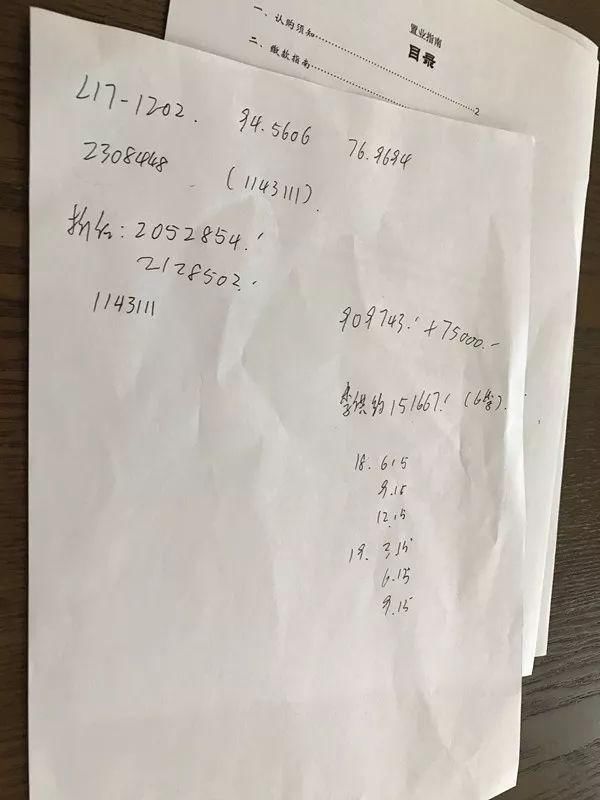 置业指南
目录
一、认购须知……………………2
二、缴款指南……………………
L17-1202. 94.5606 76.9694
2308448 (1143111).
折后: 2052854.-
2128502.-
1143111
909743.- + 75000.-
季供约151667.- (6季).
18. 6.15
9.15
12.15
19. 3.15
6.15
9.15